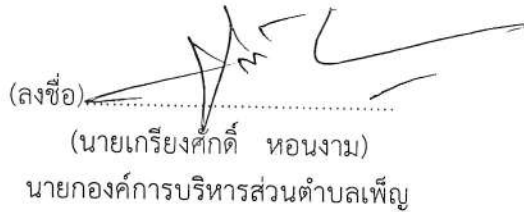 (ลงชื่อ)
(นายเกรียงศักดิ์ หอนงาม)
นายกองค์การบริหารส่วนตำบลเพ็ญ